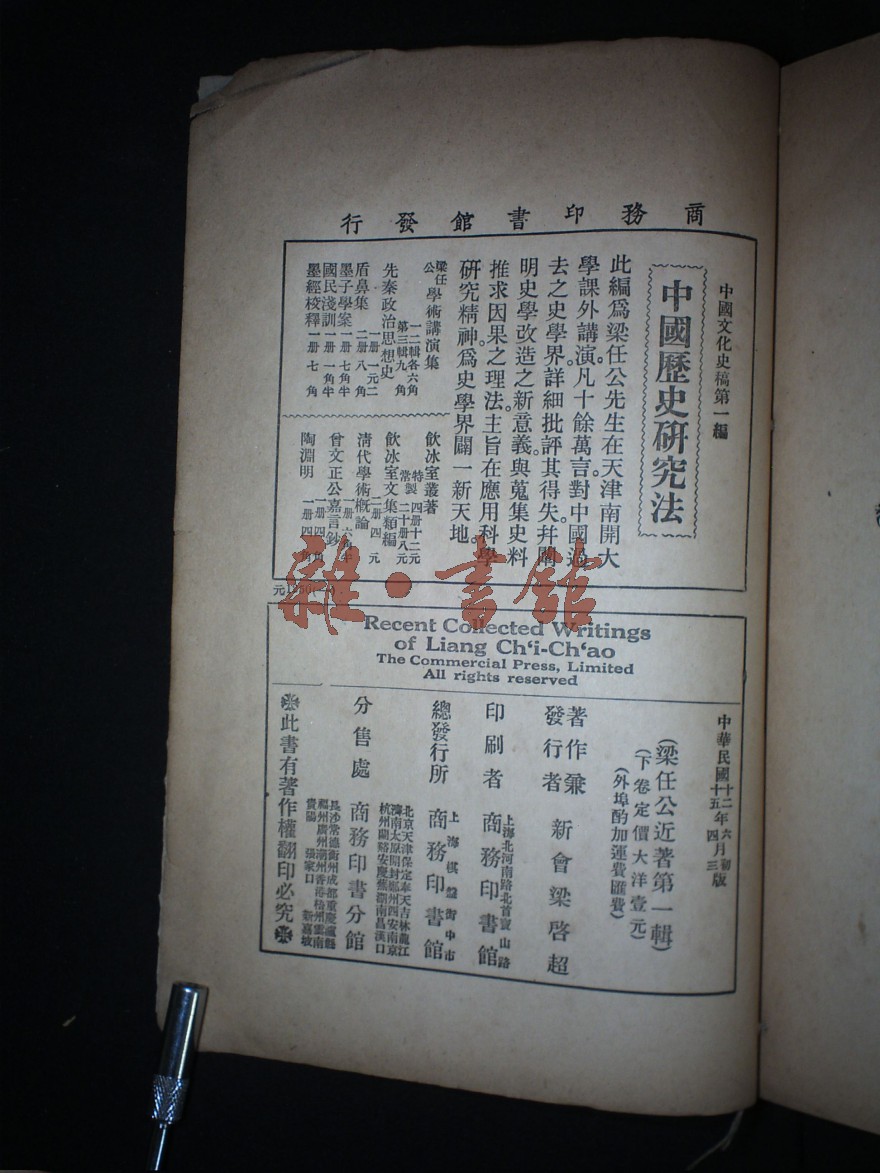 商務印書館發行
中國文化史稿第一編
中國歷史研究法
此編爲梁任公先生在天津南開大
學課外講演凡十餘萬言。對中國過
去之史學界。詳細批評其得失。幷闡
明史學改造之新意義。與蒐集史料
推求因果之理法。主旨在應用科學
研究精神。爲史學界闢一新天地。
梁任公學術講演集
一二輯各六角
第三輯九角
先秦政治思想史
一册一元二
盾鼻集 二册八角
墨子學案 一册七角半
國民淺訓 一册一角半
墨經校釋 一册七角
飲冰室叢著
特製四册十二元
常製二十册八元
飲冰室文集類編
二册四元
清代學術概論
一册六角半
曾文正公嘉言鈔
一册四角
陶淵明 一册四角
Recent Collected Writings
of Liang Ch‘i-Ch‘ao
The Commercial Press, Limited
All rights reserved
中華民國十二年六月初版
十五年四月三版
(梁任公近著第一輯)
(下卷定價大洋壹元)
(外埠酌加運費匯費)
著作兼發行者 新會梁啓超
印刷者 上海北河南路北首寶山路 商務印書館
總發行所 上海棋盤街中市 商務印書館
分售處 商務印書分館
北京天津保定奉天吉林龍江
濟南太原開封鄭州西安南京
杭州蘭谿安慶蕪湖南昌漢口
長沙常德衡州成都重慶瀘縣
福州廣州潮州香港梧州雲南
貴陽 張家口 新嘉坡
※此書有著作權翻印必究※
雜·書館